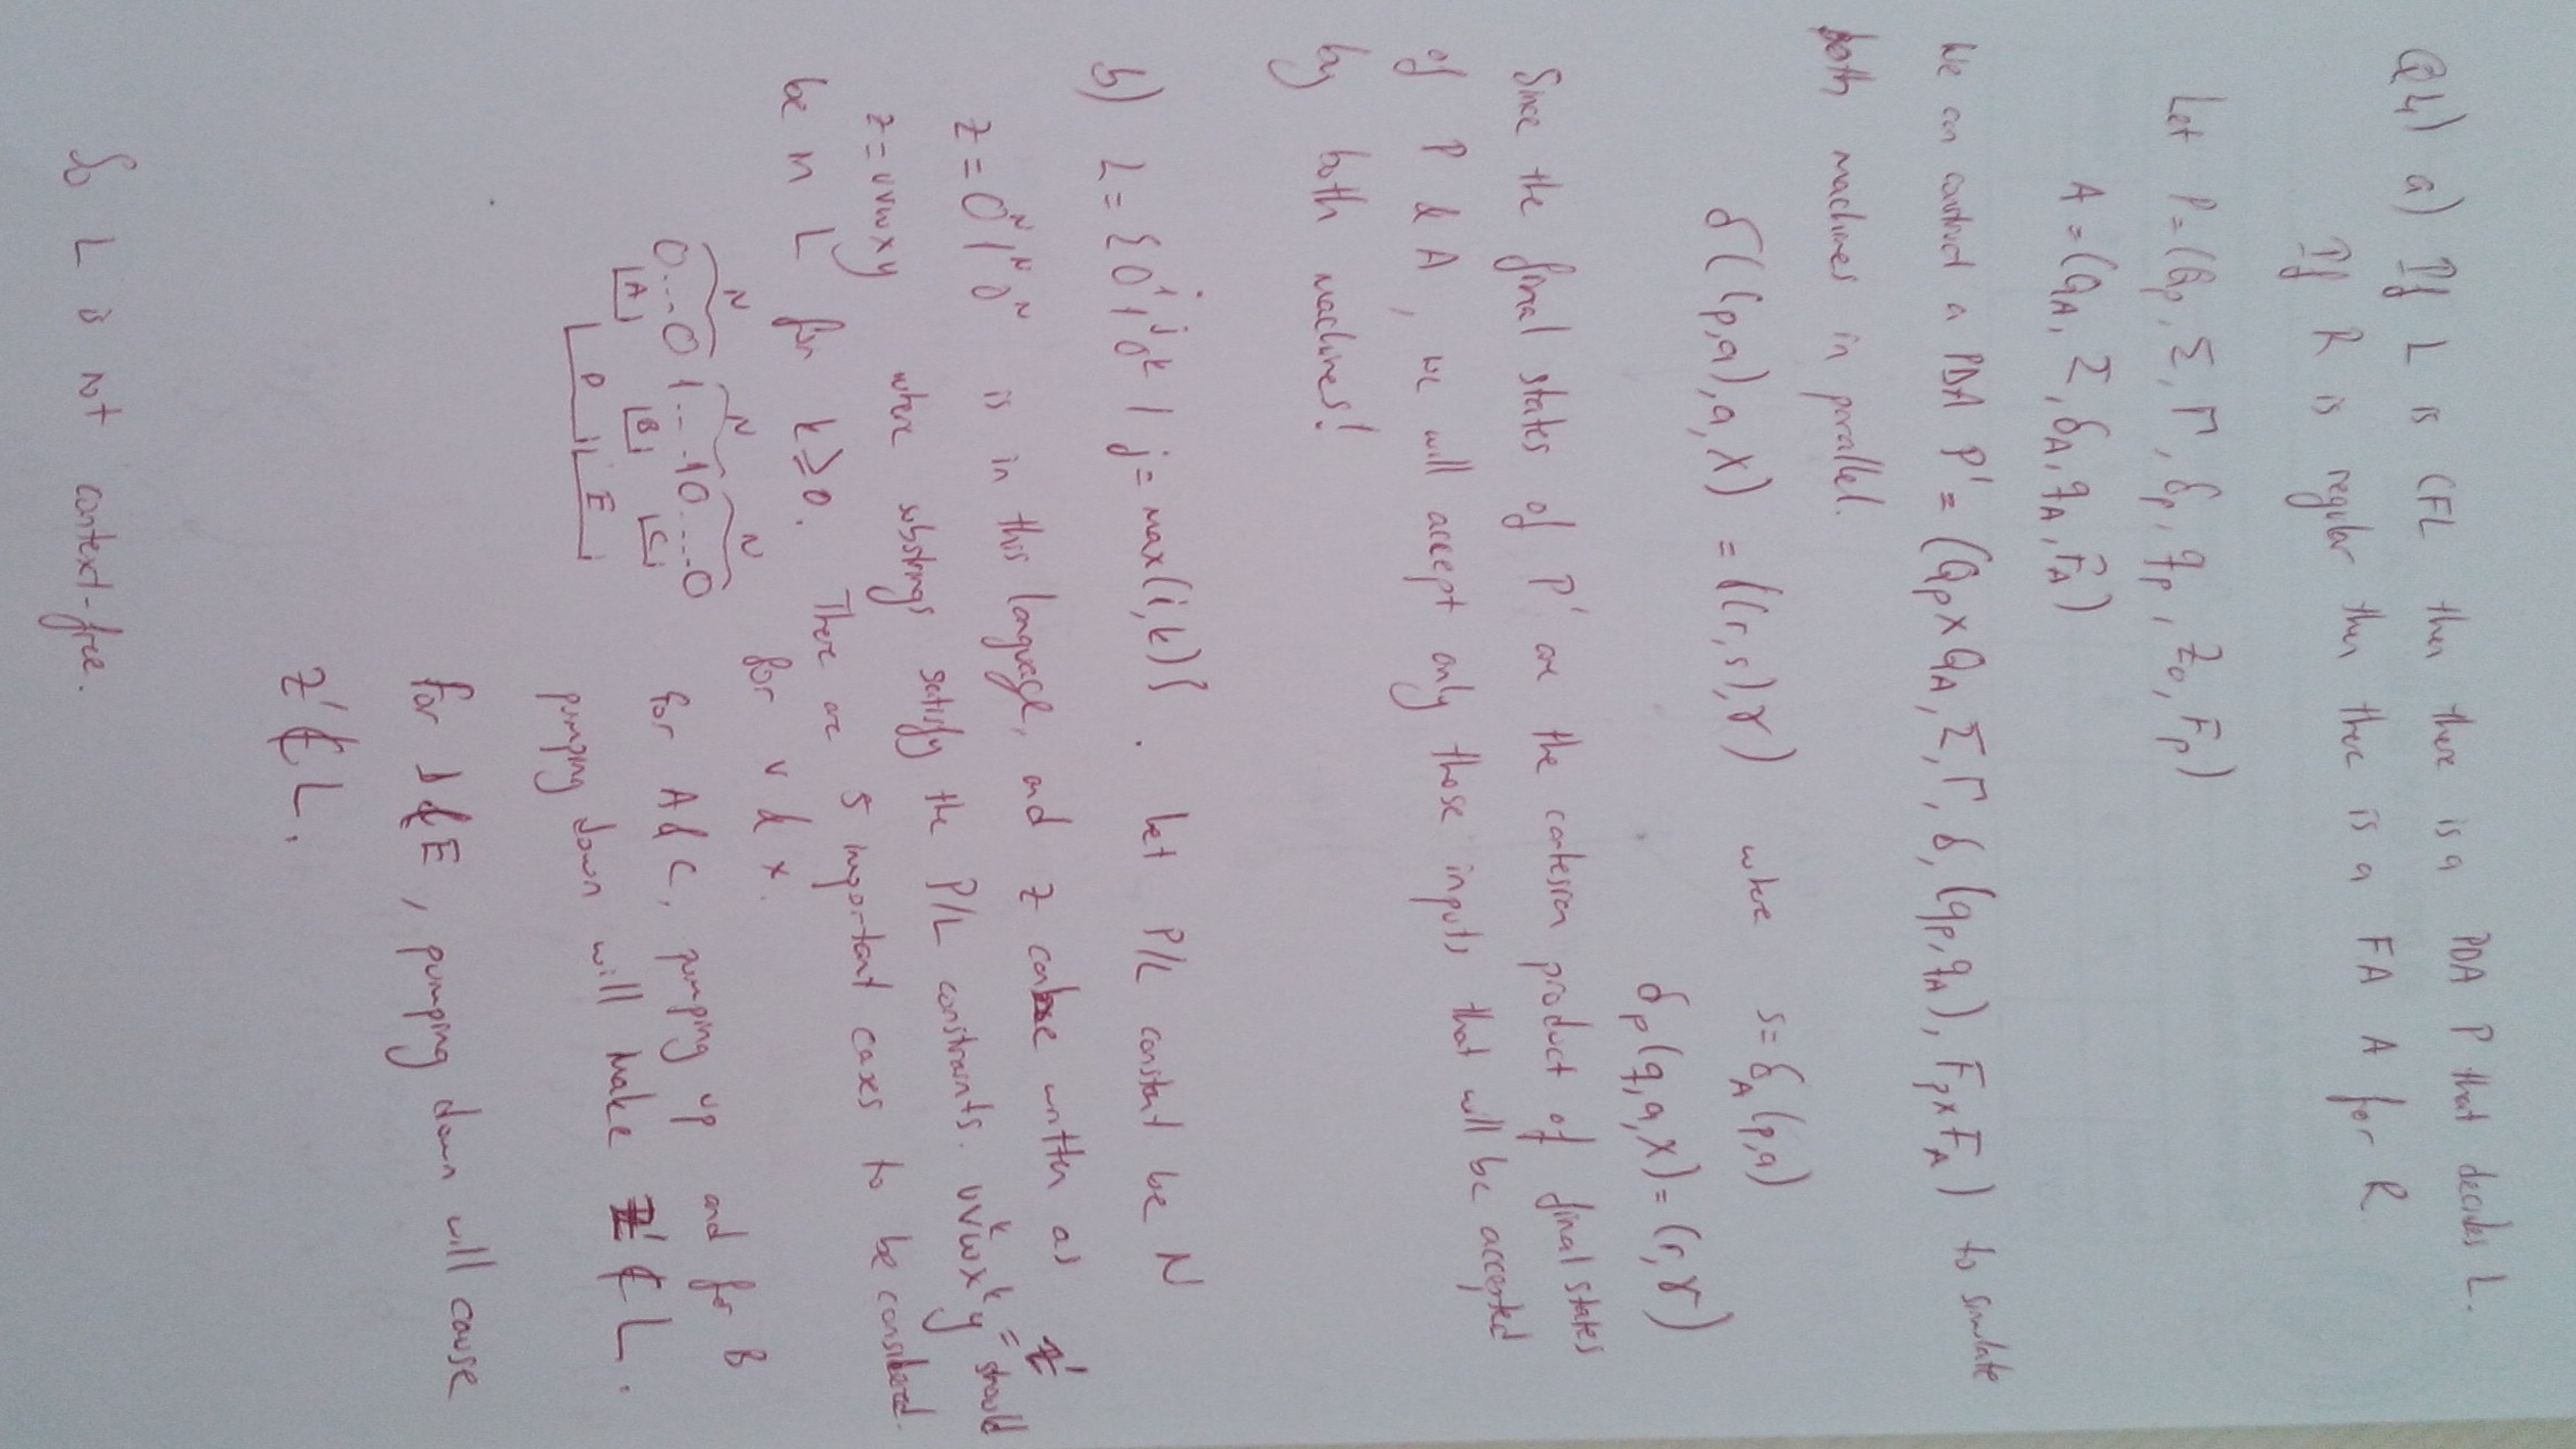 Q4) a) If L is CFL then there is a PDA P that decides L.
If R is regular then there is a FA A for R.
Let P=(Q_P, Σ, Γ, δ_P, q_P, Z_0, F_P)
A=(Q_A, Σ, δ_A, q_A, F_A)
We can construct a PDA P'=(Q_P×Q_A, Σ, Γ, δ, (q_P, q_A), F_P×F_A) to simulate
both machines in parallel.
δ((p,q),a,X) = ((r,s),γ) where s=δ_A(p,a)
δ_P(q,a,X)=(r,γ)
Since the final states of P' are the cartesian product of final states
of P & A, we will accept only those inputs that will be accepted
by both machines!
b) L={0^i 1^j 0^k | j=max(i,k)}. Let P/L constant be N
z=0^N 1^N 0^N is in this language, and z can be written as
z=uvwxy where substrings satisfy the P/L constraints. uv^k wx^k y = z' should
be in L for k≥0. There are 5 important cases to be considered.
for v & x.
N N N
0...0 1...1 0...0
A B C
D E
For A & C, pumping up and for B
pumping down will make z' ∉ L.
For D & E, pumping down will cause
z' ∉ L.
So L is not context-free.